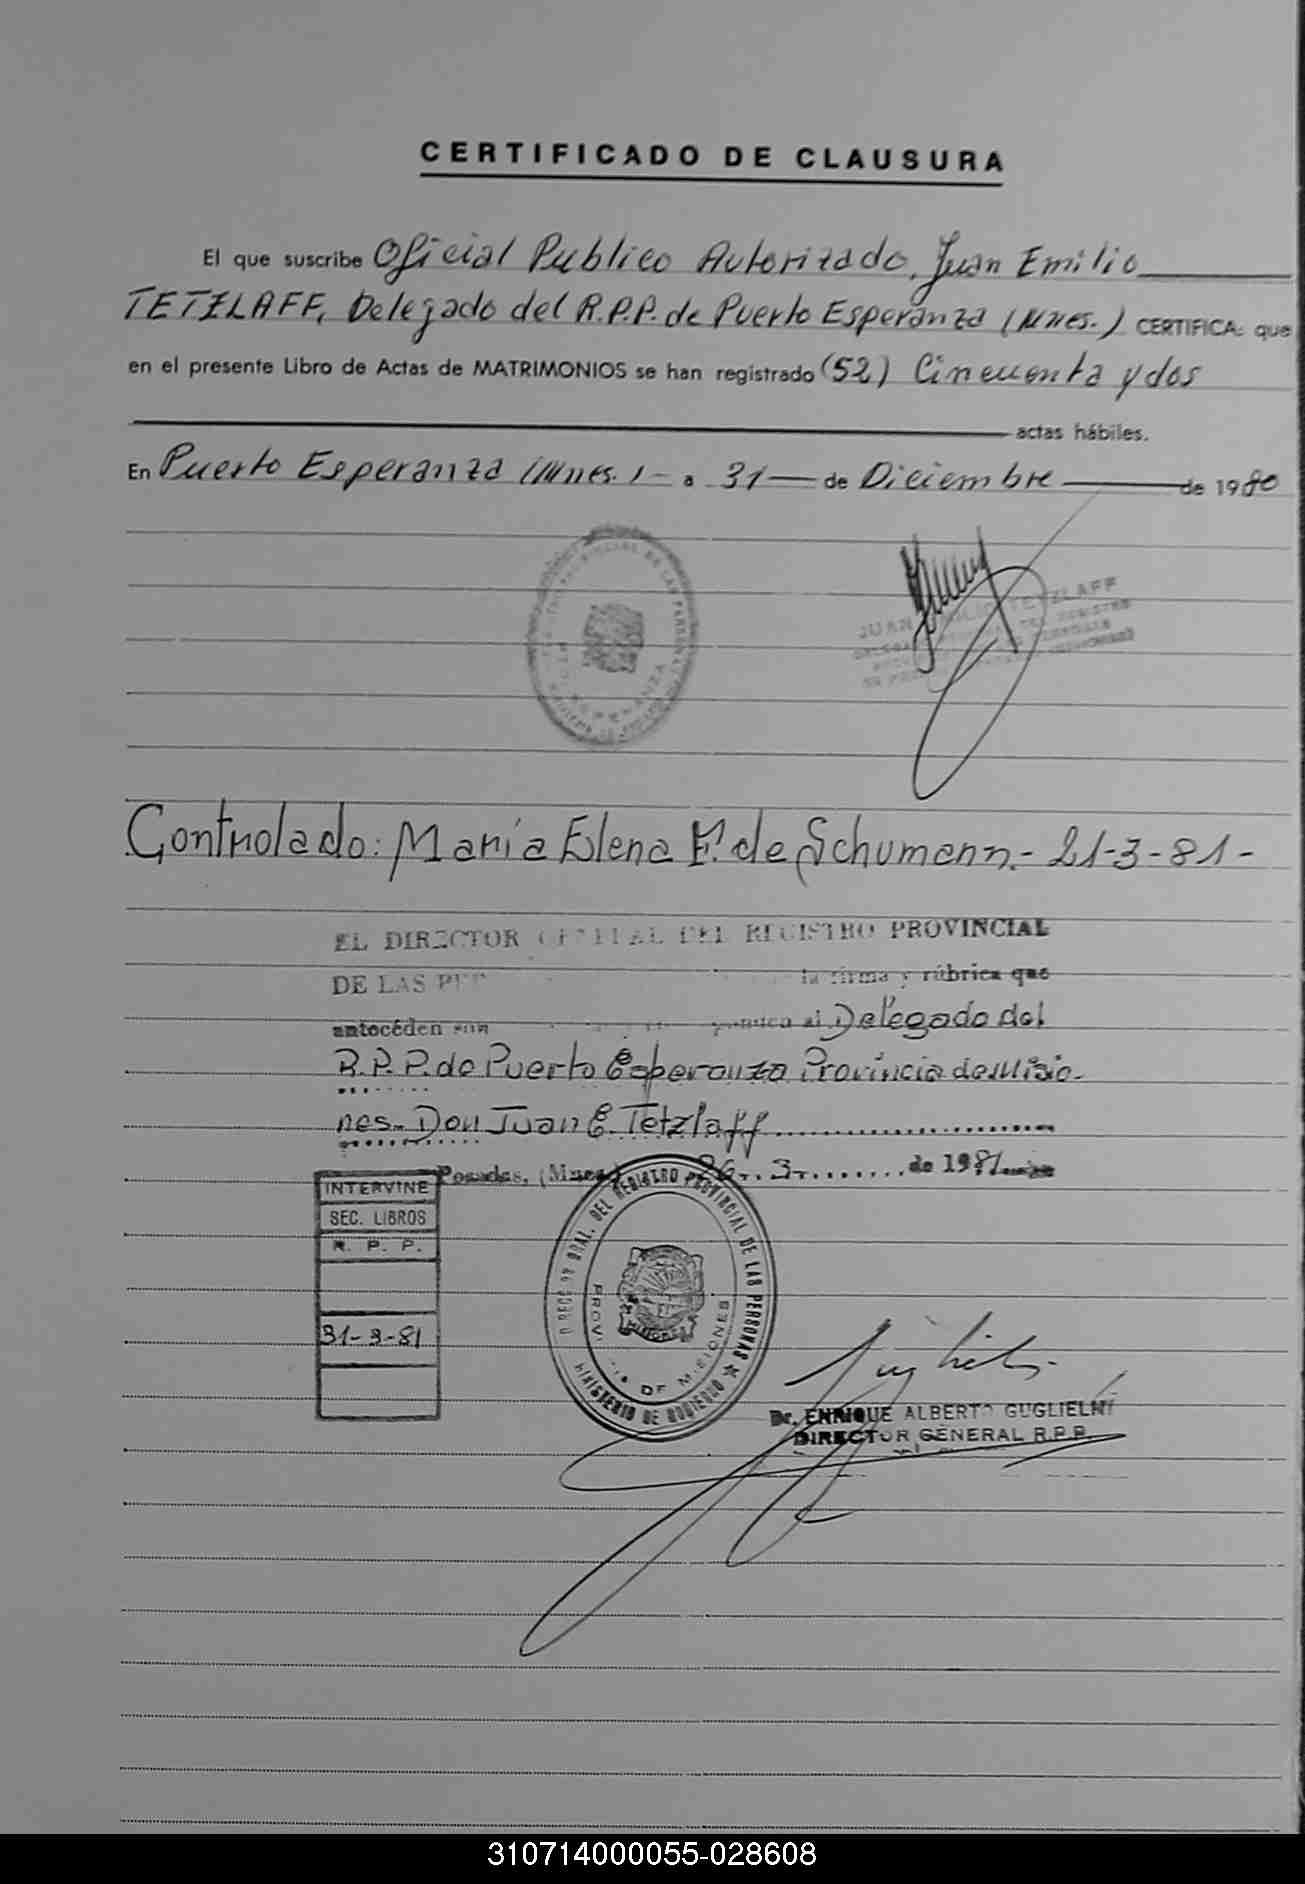 CERTIFICADO DE CLAUSURA
El que suscribe Oficial Publico Autorizado, Juan Emilio
TETZLAFF, Delegado del R.P.P. de Puerto Esperanza (Mnes.) CERTIFICA: que
en el presente Libro de Actas de MATRIMONIOS se han registrado (52) Cincuenta y dos
actas hábiles.
En Puerto Esperanza (Mnes.) - a 31 - de Diciembre de 1980
JUAN EMILIO TETZLAFF
Controlado: María Elena F. de Schumann.- 21-3-81-
EL DIRECTOR GENERAL DEL REGISTRO PROVINCIAL
DE LAS la firma y rúbrica que
antecéden son al Delegado del
R.P.P. de Puerto Esperanza Provincia de Misio-
nes.- Don Juan E. Tetzlaff
Posadas, (Mnes.) 26. 3. de 1981
INTERVINE
SEC. LIBROS
R. P. P.
31-3-81
DIRECC ON GRAL. DEL REGISTRO PROVINCIAL DE LAS PERSONAS
MINISTERIO DE GOBIERNO
PROVINCIA DE MISIONES
Dr. ENRIQUE ALBERTO GUGLIELMI
DIRECTOR GENERAL R.P.P.
310714000055-028608